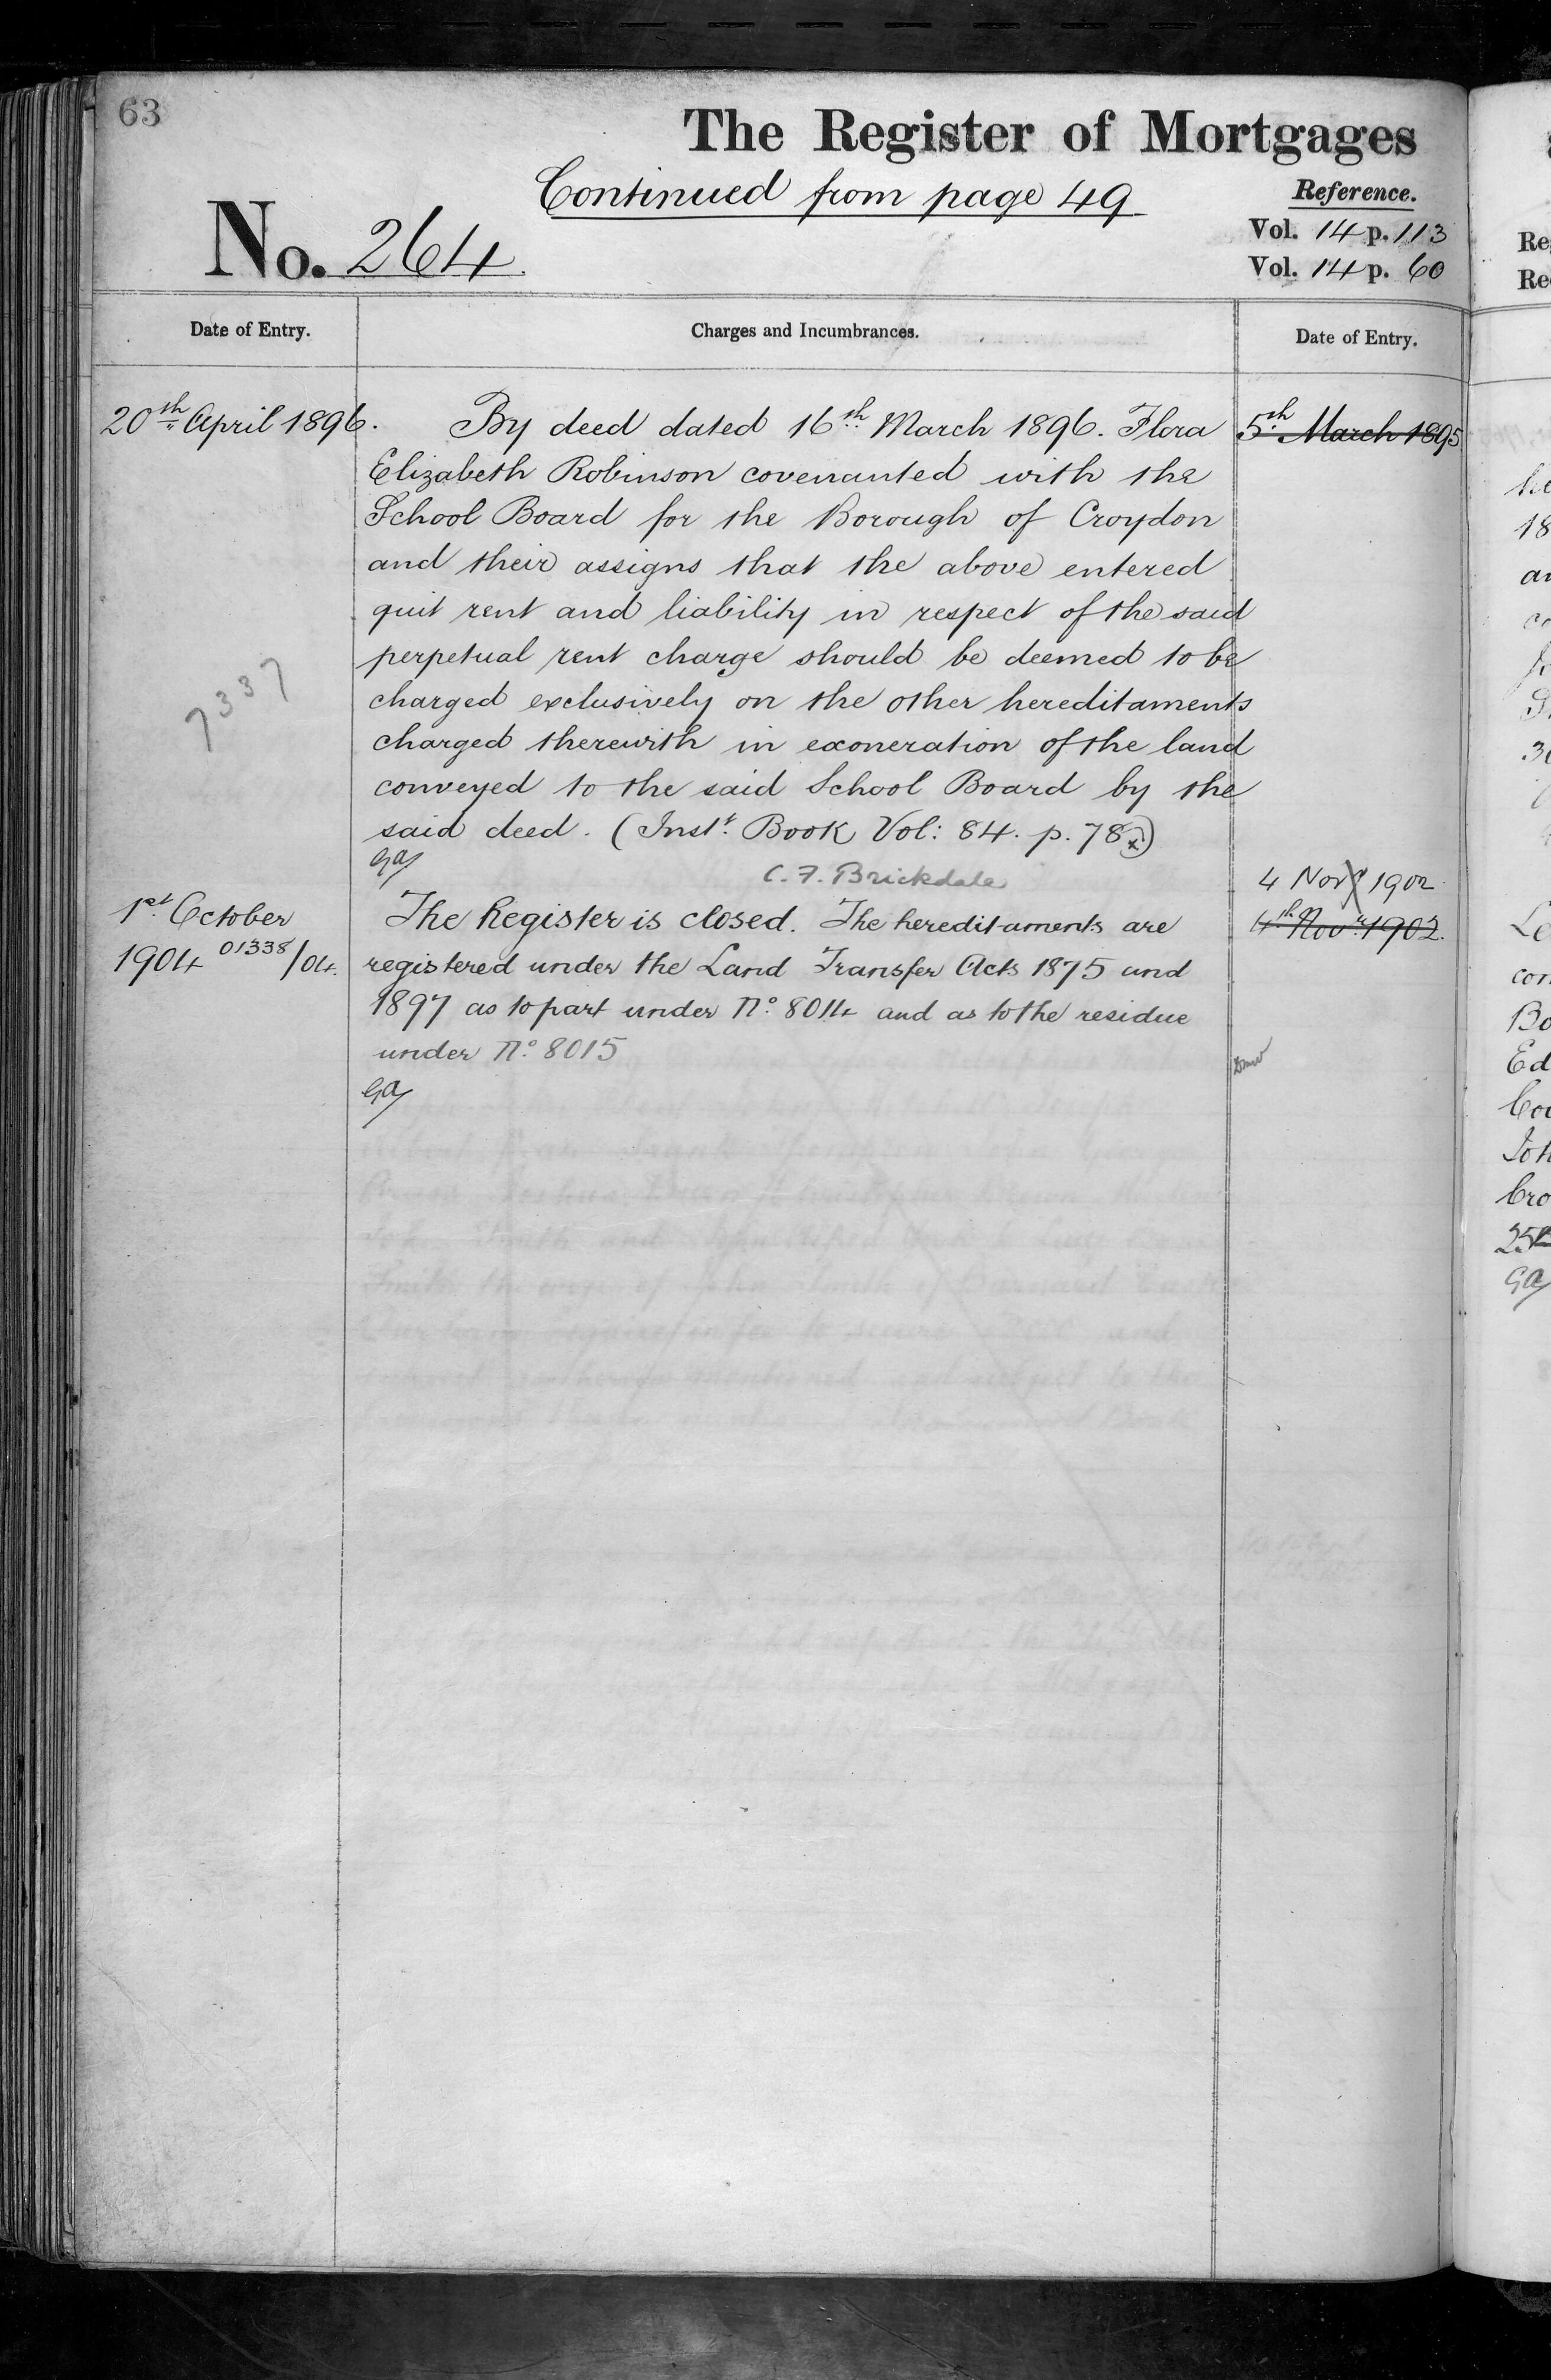 63
The Register of Mortgages
Continued from page 49
Reference.
No. 264
Vol. 14 p. 113
Vol. 14 p. 60
Date of Entry.
Charges and Incumbrances.
Date of Entry.
20th April 1896.
By deed dated 16th March 1896. Flora
Elizabeth Robinson covenanted with the
School Board for the Borough of Croydon
and their assigns that the above entered
quit rent and liability in respect of the said
perpetual rent charge should be deemed to be
charged exclusively on the other hereditaments
charged therewith in exoneration of the land
conveyed to the said School Board by the
said deed. (Inst. Book Vol: 84. p. 78)
7337
Ga
C. F. Brickdale
1st October
1904 01338/04.
The Register is closed. The hereditaments are
registered under the Land Transfer Acts 1875 and
1897 as to part under No. 8014 and as to the residue
under No. 8015
Ga
5th March 1895
4 Novr 1902
4th Novr. 1902.
Re
Re
he
18
an
30
Le
con
Bo
Ed
Cou
Joh
Cro
25
Ga